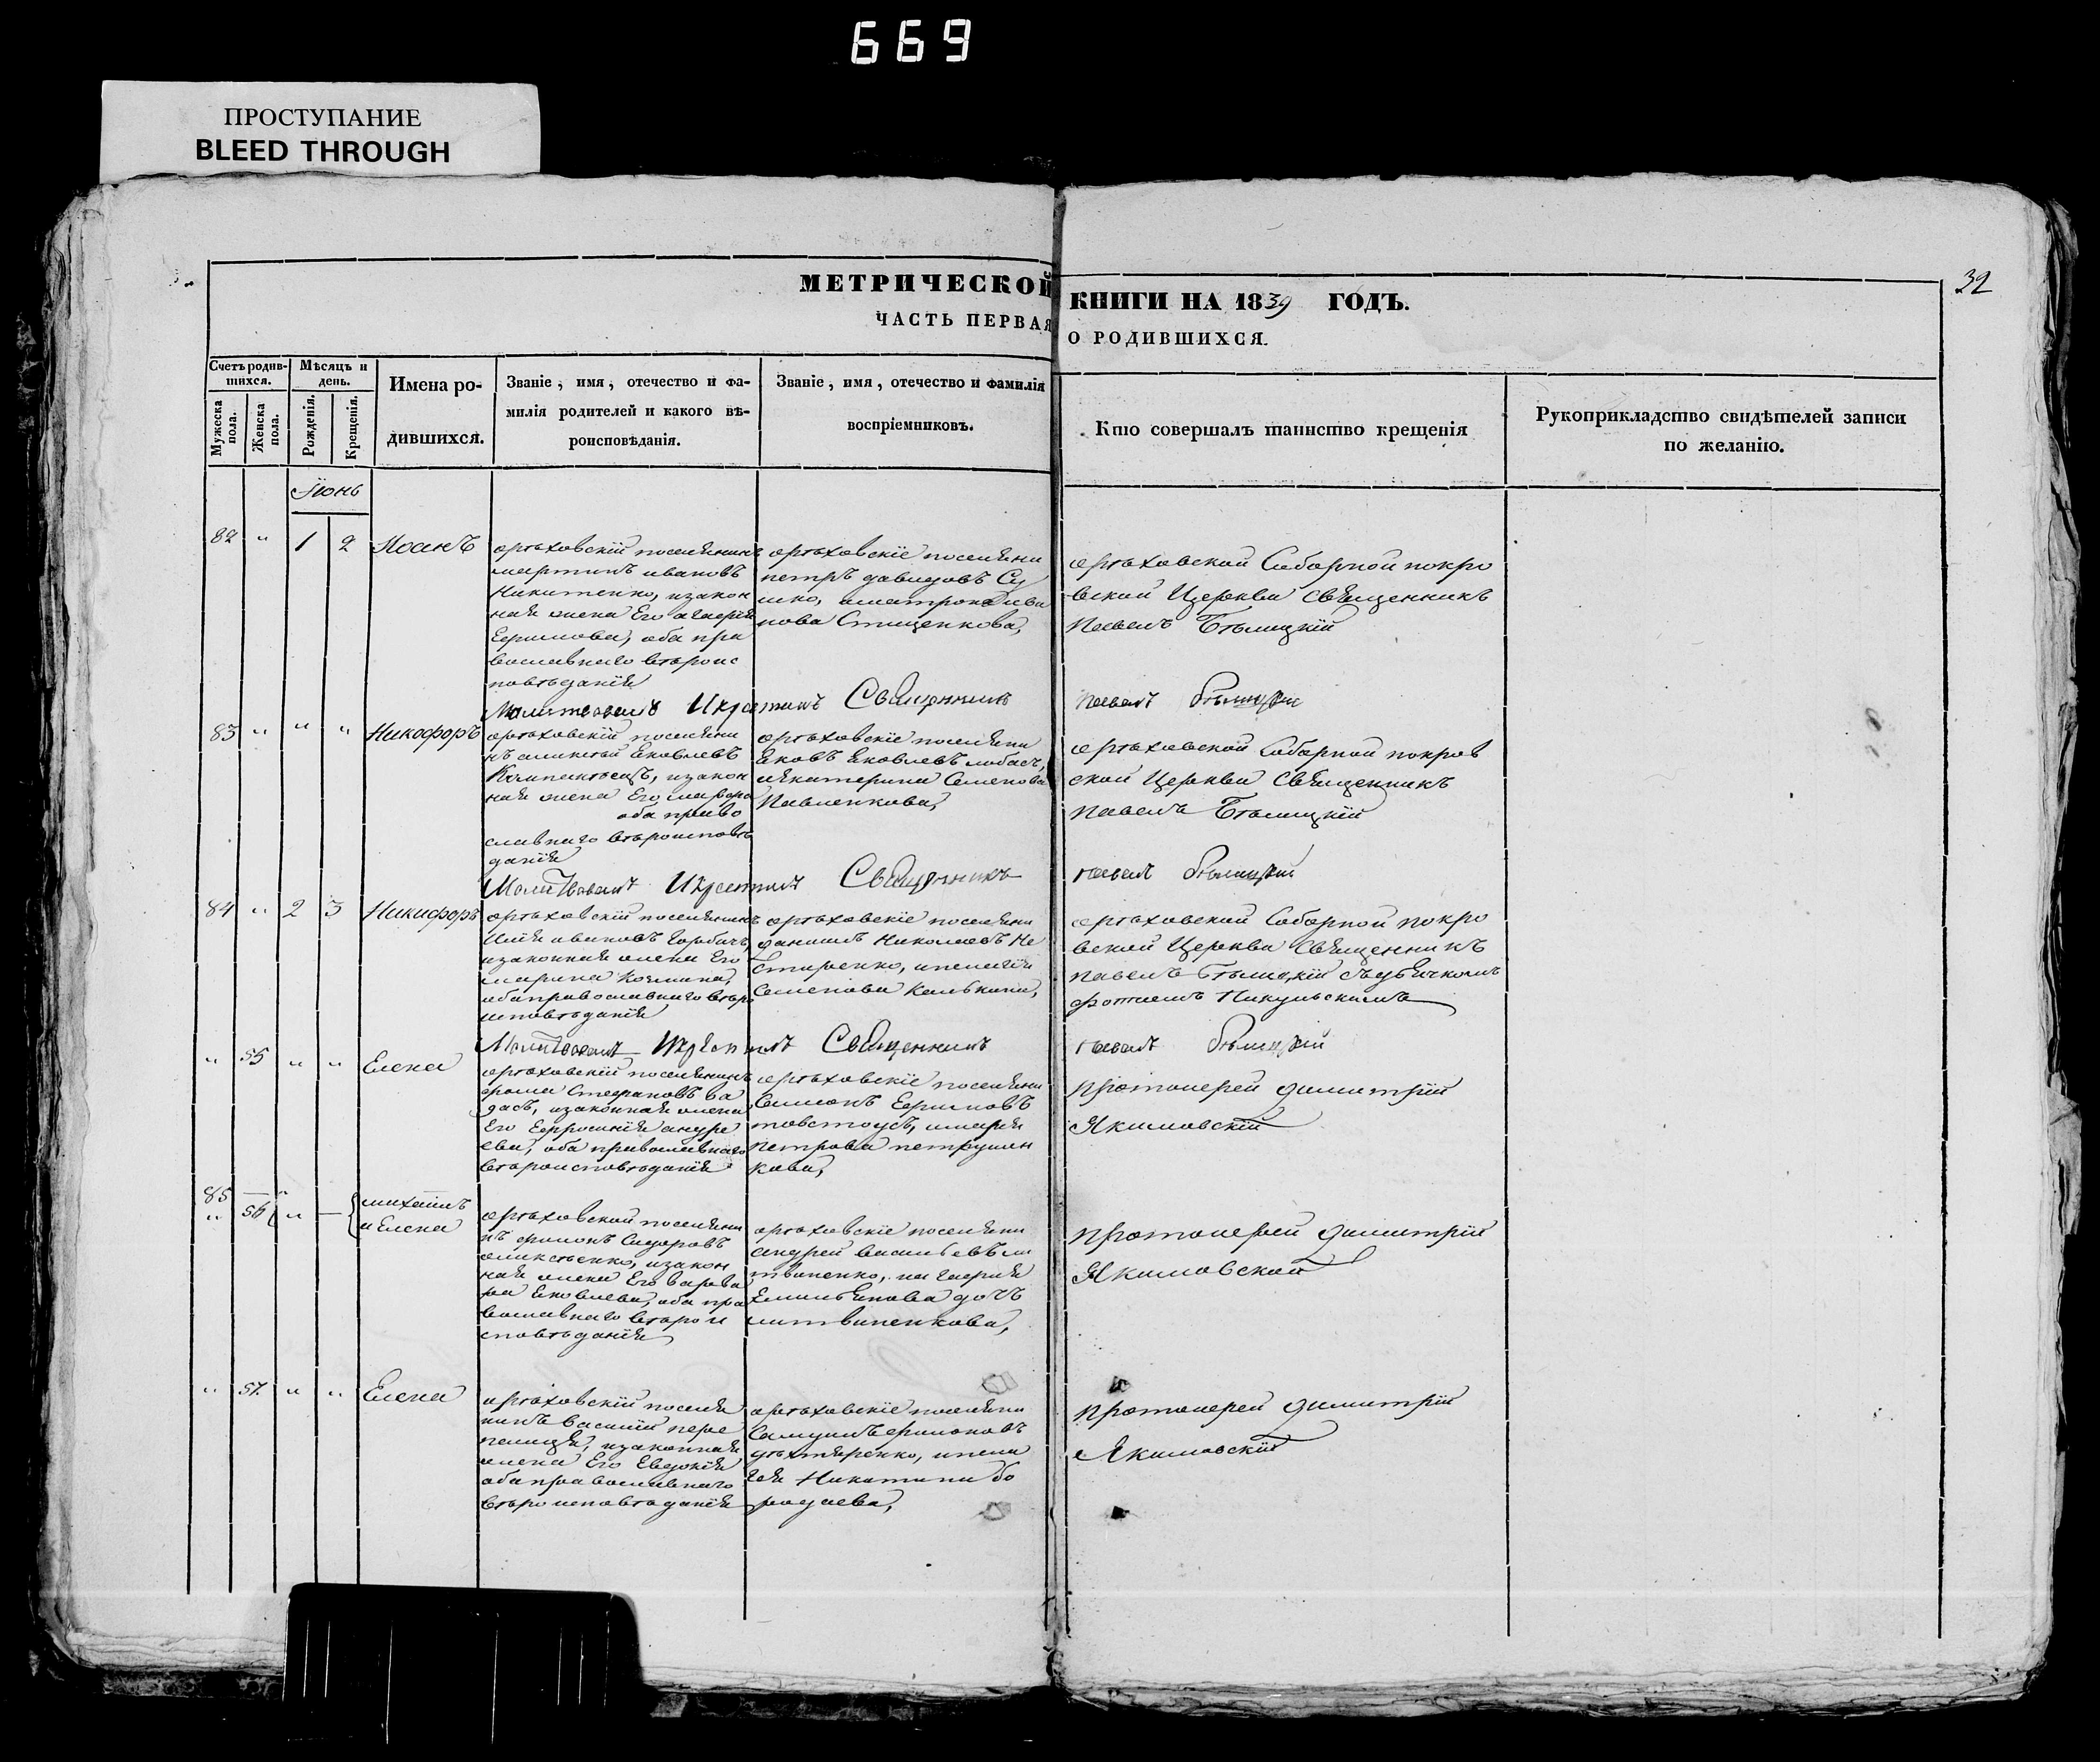 669
ПРОСТУПАНИЕ
BLEED THROUGH
32
МЕТРИЧЕСКОЙ КНИГИ НА 1839 ГОДЪ.
ЧАСТЬ ПЕРВАЯ О РОДИВШИХСЯ.
Счетъ родив-
шихся.
Мужеска пола.
Женска пола.
Мѣсяцъ и
день.
Рожденія.
Крещенія.
Имена ро-
дившихся.
Званіе, имя, отечество и фа-
милія родителей и какого вѣ-
роисповѣданія.
Званіе, имя, отечество и фамилія
воспріемниковъ.
Кто совершалъ таинство крещенія
Рукоприкладство свидѣтелей записи
по желанію.
Іюнь
82 " 1 2 Иоанъ
орѣховскій поселянинъ
мартинъ ивановъ
Никитенко, изакон
ная жена Его
Ефимова, оба пра
вославнаго вѣроис
повѣданія
орѣховскіе поселяни
петръ давидовъ Су
шко, иматрона ива
нова Стищенкова,
орѣховской Соборной покро
вской Церкви Священникъ
Павелъ Бѣлицкій
Молитвовалъ Икрестилъ Священникъ павелъ бѣлицкій
83 " " " Никофоръ
орѣховскій поселяни
нъ алексѣй Яковлевъ
изакон
ная жена Его марфа
оба право
славнаго вѣроисповѣ
данія
орѣховскіе поселяни
Яковъ Яковлевъ лобасъ,
иЕкатерина Семенова
Павленкова,
орѣховской Соборной покров
ской Церкви Священникъ
павелъ Бѣлицкій
Молитвовалъ Икрестилъ Священникъ павелъ бѣлицкій
84 " 2 3 Никифоръ
орѣховскій поселянинъ
Илія ивановъ горбачъ,
изаконная жена Его
марина
оба православнаго вѣро
исповѣданія
орѣховскіе поселяни
данилъ Николаевъ Не
стеренко, ипелагія
Семенова
орѣховской Соборной покро
вской Церкви Священникъ
павелъ Бѣлицкій съдьячкомъ
фотіемъ Никульскимъ
Молитвовалъ Икрестилъ Священникъ павелъ бѣлицкій
" 55 " " Елена
орѣховскій поселянинъ
фома Стефановъ ва
дасъ, изаконная жена
Его Ефросинія андре
ева, оба православнаго
вѣроисповѣданія
орѣховскіе поселяни
Симонъ Ефимовъ
товстоусъ, имарія
петрова петрушен
кова,
протоиерей димитрій
Якимовскій
85 56 " — михаилъ
иЕлена
орѣховской поселяни
нъ филонъ Сидоровъ
алексѣенко, изакон
ная жена Его варва
ра Яковлева, оба пра
вославнаго вѣрои
сповѣданія
орѣховскіе поселяни
андрей васильевъ ли
твиненко,
Емильянова дочъ
литвиненкова,
протоиерей димитрій
Якимовской
" 57. " " Елена
орѣховскій поселя
нинъ василій пере
пелица, изаконная
жена Его Евдокія
оба православнаго
вѣроисповѣданія
орѣховскіе поселяни
Самуилъ филоновъ
дѣхтяренко, ипела
гея Никитина бо
родаева,
протоиерей димитрій
Якимовскій